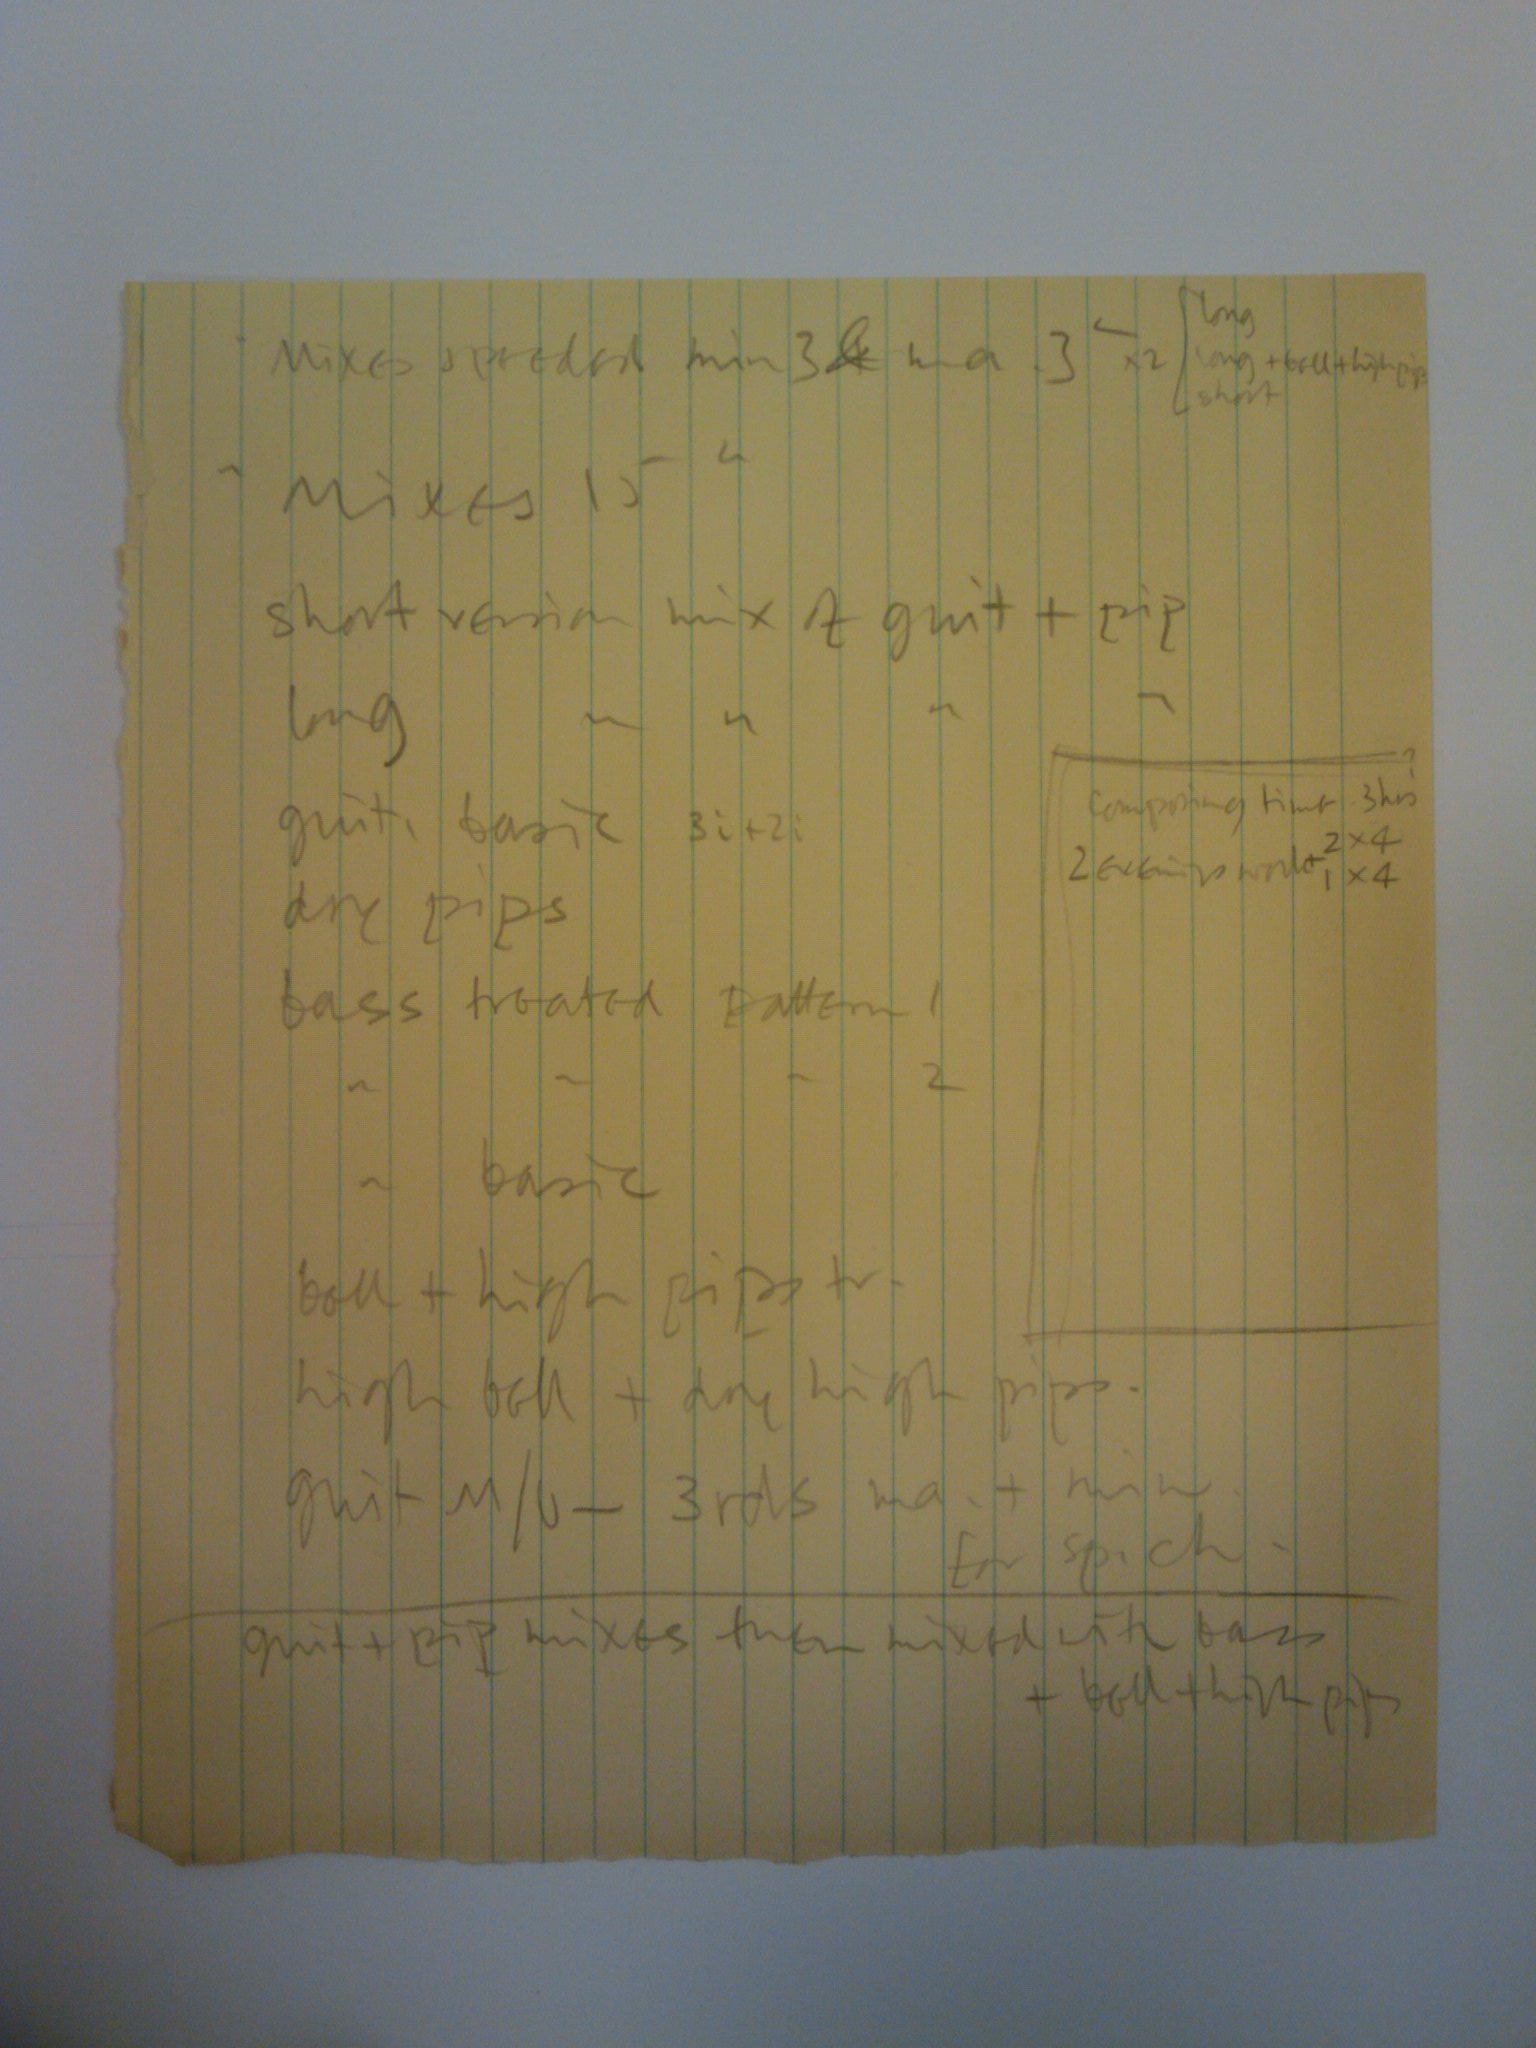 Mixes speeded min 3 & ma. 3 x2
long
long + bell + high pips
short
" Mixes 15 "
short version mix of guit + pip
long " " " "
guit. basic 3i+2i
dry pips
composing time. 3 hrs
2 evenings work + 2 x 4
1 x 4
bass treated pattern 1
" " " 2
" basic
bell + high pips tr.
high bell + dry high pips.
guit M/U — 3rds ma. + min.
for
guit + pip mixes then mixed with bass
+ bell + high pips